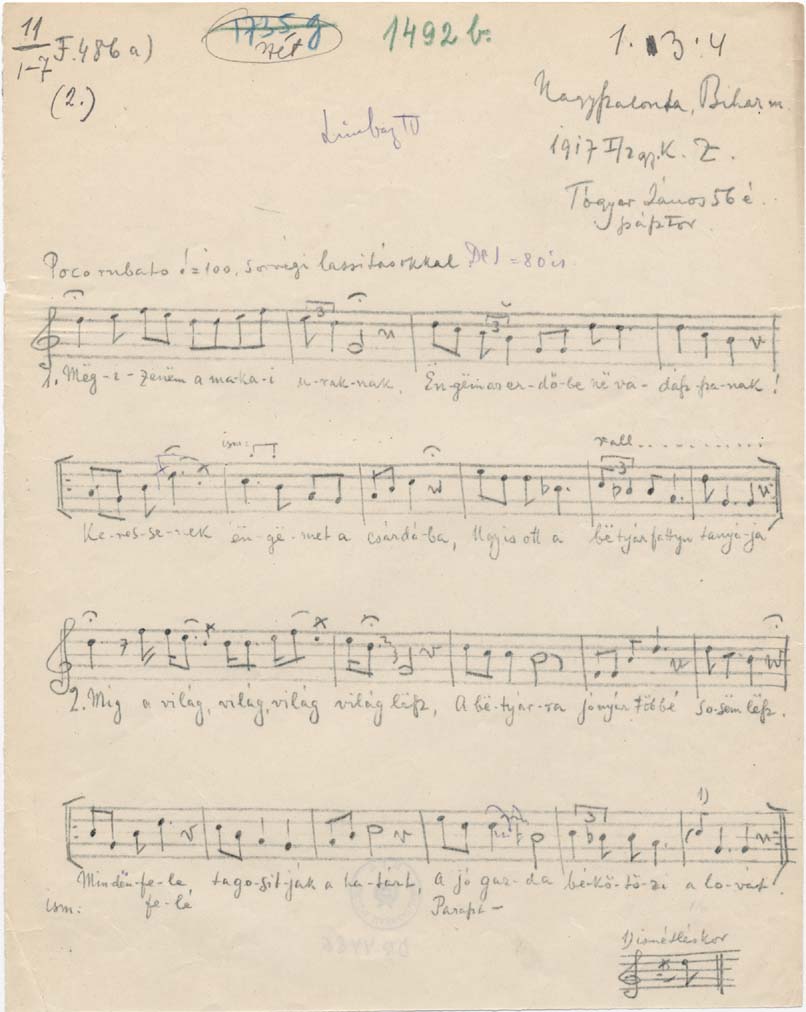 11/1-7 F.486 a)
(2.)
1735 g
1492 b.
1. 3. 4
Nagyszalonta, Bihar m.
1917 K. Z.
Tógyer János 56 é
pásztor.
Poco rubato = 100, sorvégi lassításokkal. = 80 is
3 3
1. Mëg-i-zenëm a ma-ka-i u-rak-nak, Ën-gëm az er-dő-be në va-dász-sza-nak!
ism:
rall............
3
Ke-res-se-nek ën-gë-met a csárdá-ba, Ugyis ott a bëtyár fattyu tanyá-ja
2. Mig a világ, világ, világ világ lësz, A bë-tyár-ra jó nyár többé so-sëm lësz.
3
1)
Mindën-fe-le, tago-sit-ják a ha-tárt, A jó gaz-da bé-kö-tö-zi a lo-vát.
ism: fe-lé Paraszt-
1) ismétléskor